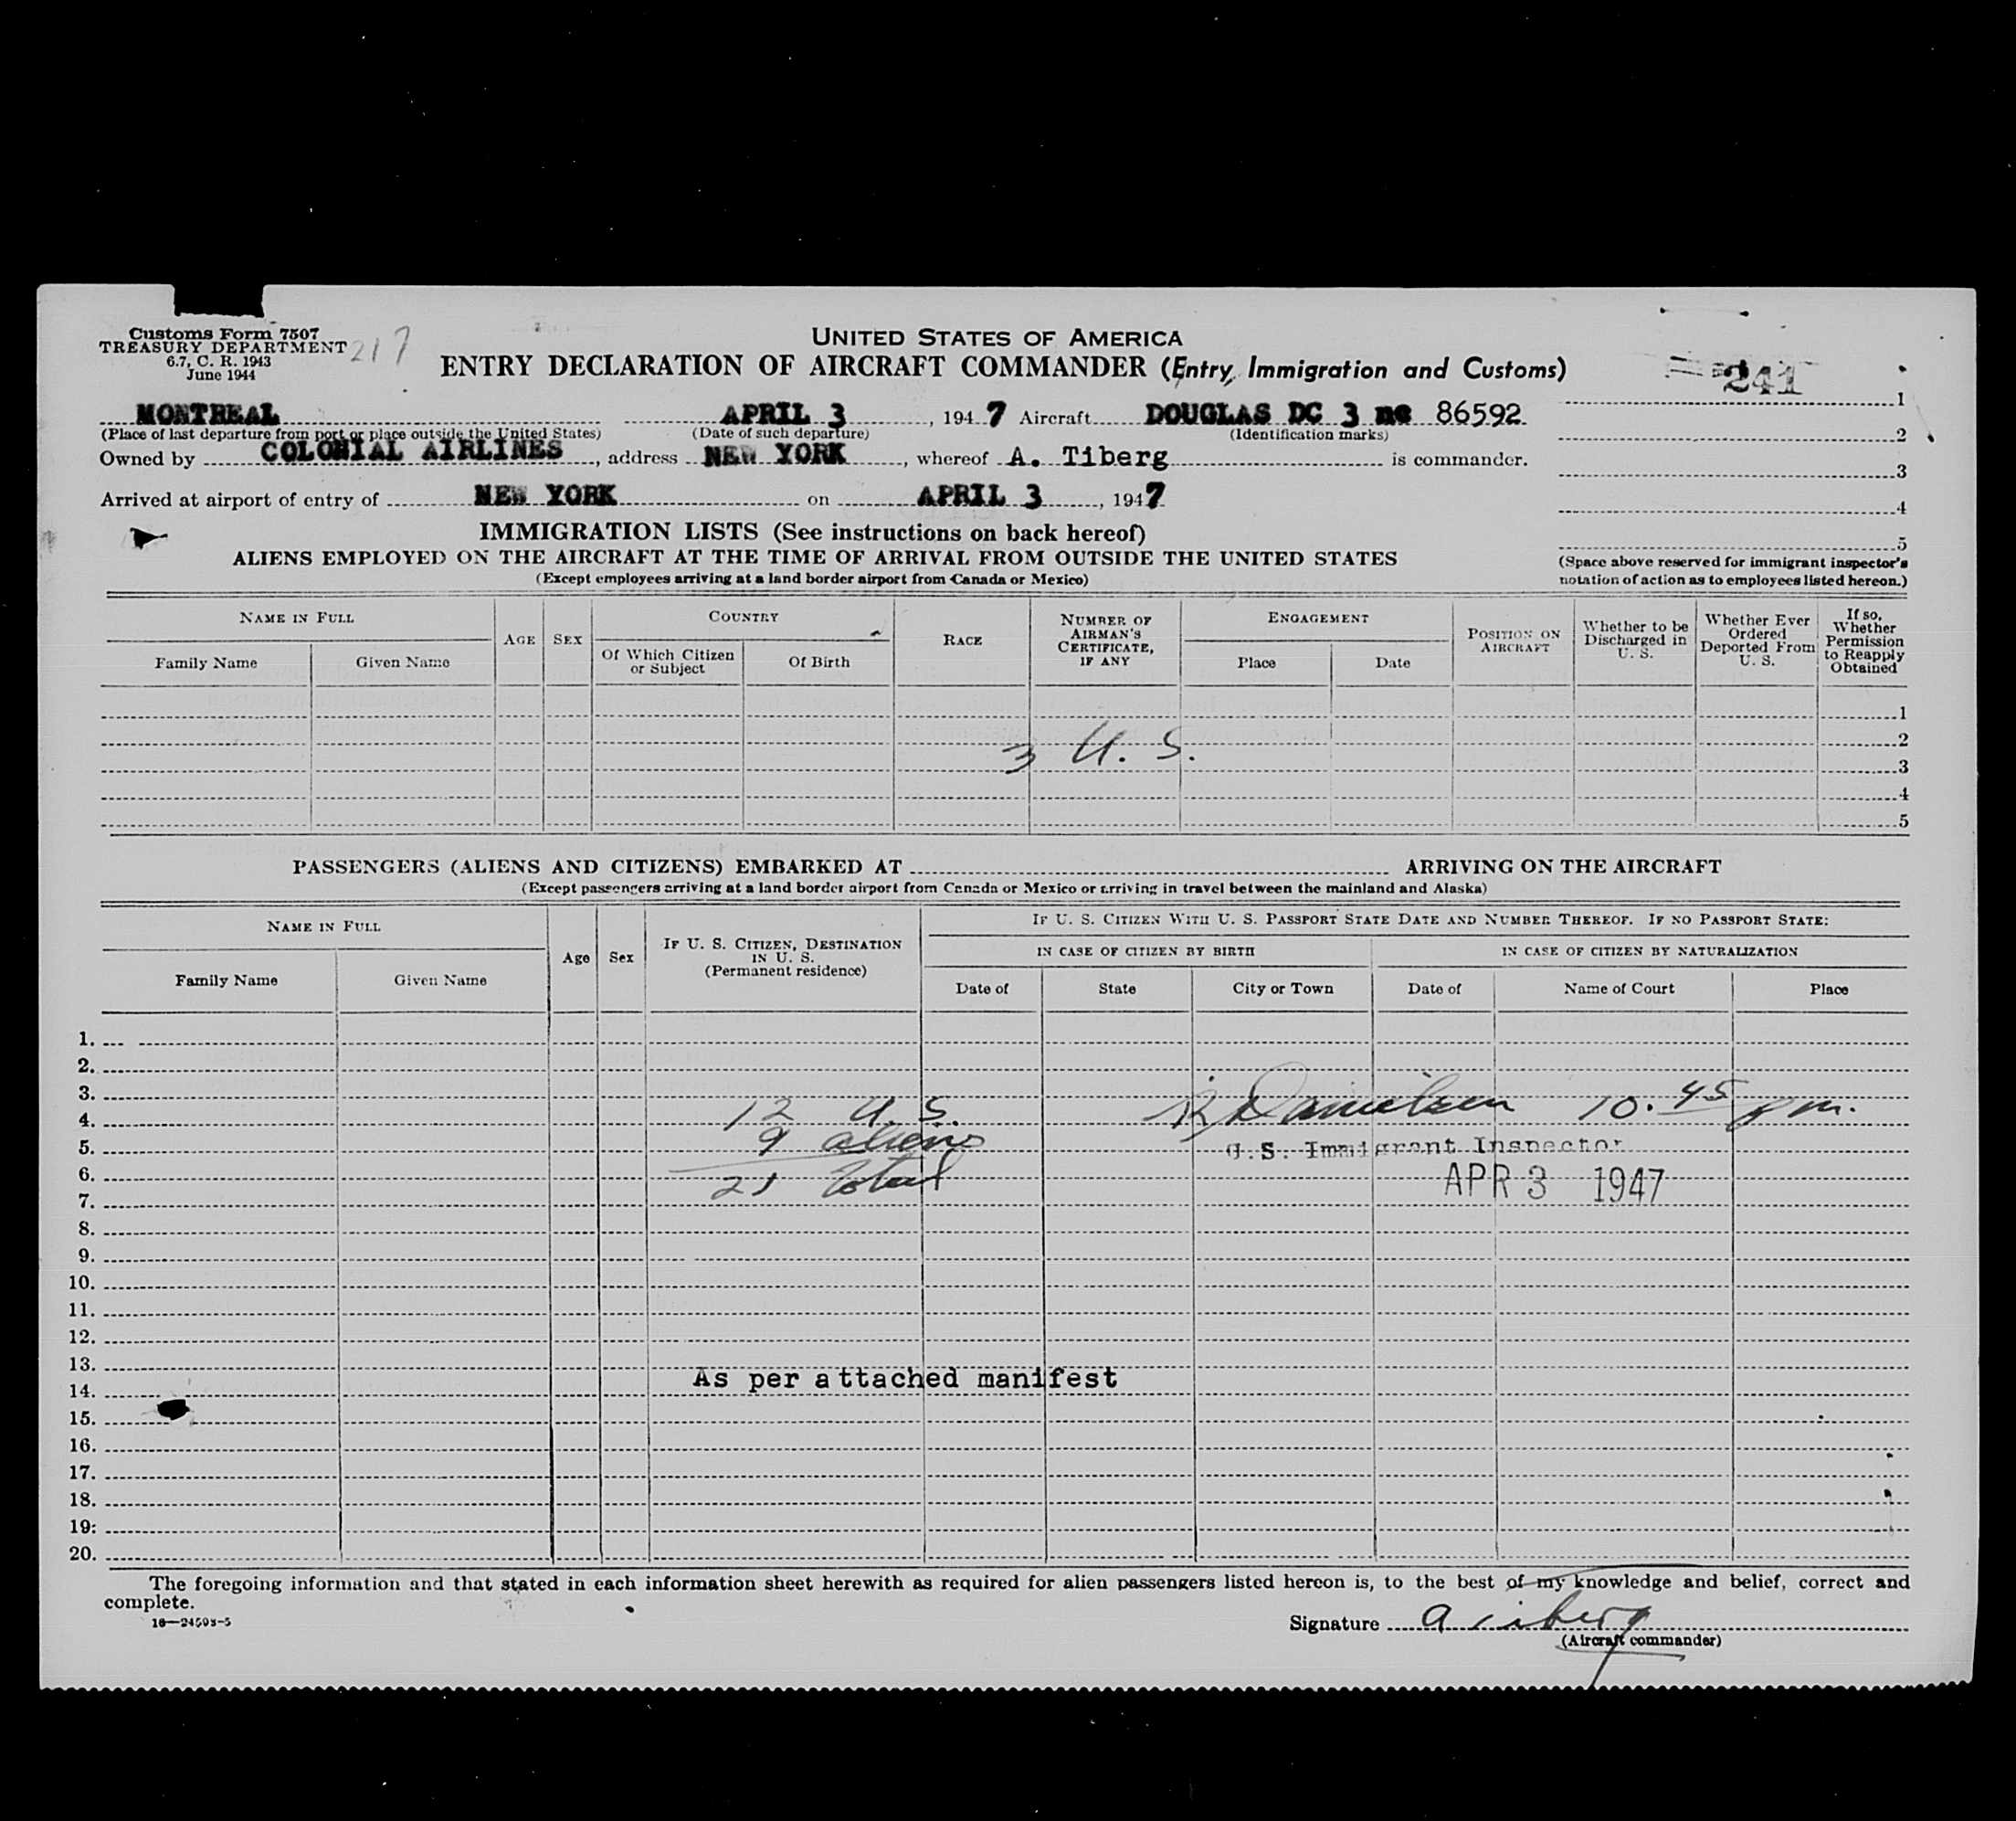 Customs Form 7507
TREASURY DEPARTMENT
6.7, C. R. 1943
June 1944
217
UNITED STATES OF AMERICA
ENTRY DECLARATION OF AIRCRAFT COMMANDER (Entry, Immigration and Customs)
241
MONTREAL APRIL 3, 1947 Aircraft DOUGLAS DC 3 nc 86592
(Place of last departure from port or place outside the United States) (Date of such departure) (Identification marks)
Owned by COLONIAL AIRLINES, address NEW YORK, whereof A. Tiberg is commander.
Arrived at airport of entry of NEW YORK on APRIL 3, 1947
1
2
3
4
5
(Space above reserved for immigrant inspector's
notation of action as to employees listed hereon.)
IMMIGRATION LISTS (See instructions on back hereof)
ALIENS EMPLOYED ON THE AIRCRAFT AT THE TIME OF ARRIVAL FROM OUTSIDE THE UNITED STATES
(Except employees arriving at a land border airport from Canada or Mexico)
NAME IN FULL
Family Name Given Name
AGE SEX
COUNTRY
Of Which Citizen or Subject
Of Birth
RACE
NUMBER OF AIRMAN'S CERTIFICATE, IF ANY
ENGAGEMENT
Place Date
POSITION ON AIRCRAFT
Whether to be Discharged in U. S.
Whether Ever Ordered Deported From U. S.
If so, Whether Permission to Reapply Obtained
1
2
3 U. S.
3
4
5
PASSENGERS (ALIENS AND CITIZENS) EMBARKED AT ARRIVING ON THE AIRCRAFT
(Except passengers arriving at a land border airport from Canada or Mexico or arriving in travel between the mainland and Alaska)
NAME IN FULL
Family Name Given Name
Age Sex
IF U. S. CITIZEN, DESTINATION IN U. S.
(Permanent residence)
IF U. S. CITIZEN WITH U. S. PASSPORT STATE DATE AND NUMBER THEREOF. IF NO PASSPORT STATE:
IN CASE OF CITIZEN BY BIRTH IN CASE OF CITIZEN BY NATURALIZATION
Date of State City or Town Date of Name of Court Place
1.
2.
3.
4. 12 U.S. Danielsen 10.45 pm.
5. 9 aliens U.S. Immigrant Inspector
6. 21 total APR 3 1947
7.
8.
9.
10.
11.
12.
13.
As per attached manifest
14.
15.
16.
17.
18.
19.
20.
The foregoing information and that stated in each information sheet herewith as required for alien passengers listed hereon is, to the best of my knowledge and belief, correct and
complete.
16—24593-5
Signature A Tiberg
(Aircraft commander)